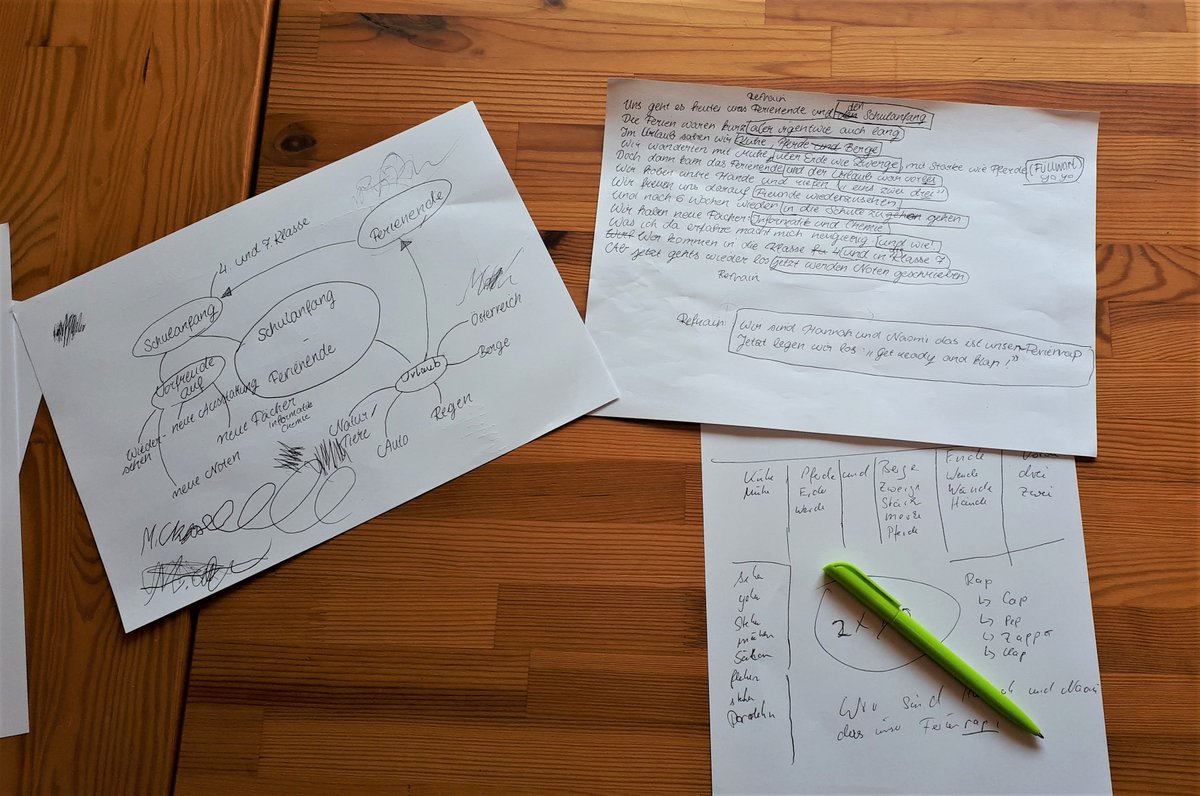 4. und 7. Klasse
Ferienende
Schulanfang
Schulanfang
-
Ferienende
Vorfreude
auf
Wieder-
sehen
neue Ausstattung
neue Fächer
Informatik
Chemie
neue Noten
Urlaub
Österreich
Berge
Regen
Auto
Natur/
Tiere
Refrain
Uns geht es heute ums Ferienende und den Schulanfang
Die Ferien waren kurz aber irgentwie auch lang
Im Urlaub sahen wir Kühe, Pferde und Berge
Wir wanderten mit Mühe unter Ende wie Zwerge mit Stärke wie Pferde (Füllwort
yo yo
Doch dann kam das Ferienende und der Urlaub war vorbei
Wir hoben unsre Hände und riefen "eins zwei drei"
Wir freuen uns darauf Freunde wiederzusehen
Und nach 6 Wochen wieder in die Schule zu gehen
Wir haben neue Fächer Informatik und Chemie
Was ich da erfahre macht mich neugierig und wie!
Wir kommen in die Klasse 4 und in Klasse 7
Ab jetzt gehts wieder los jetzt werden Noten geschrieben
Refrain
Refrain: Wir sind Hannah und Naomi das ist unser Ferienrap
Jetzt legen wir los: "Get ready and klap!"
Kühe Pferde und Berge Ende
Mühe Erde Zwerge Wende drei
Werde Stärke Wände zwei
Hände
Pferde
sehen
gehen
stehen
Rap
↳ Cap
↳ Pep
↳ Zapp
↳ klap
2 x
Wir sind und Naomi
das unser Ferienrap.